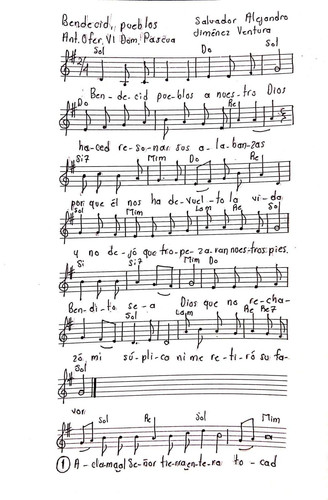 Bendecid, pueblos
Salvador Alejandro
Ant. Ofer. VI Dom. Pascua
Jiménez Ventura
Sol Do Sol
2/4
Ben-de-cid pue-blos a nues-tro Dios
Do Re
ha-ced re-so-nar sus a-la-ban-zas
Si7 Mim Do Re
por que él nos ha de-vuel-to la vi-da
Sol Mim Lam Re Sol
y no de-jó que tro-pe-za-ran nues-tros pies.
Si Si7 Mim Do
Ben-di-to se-a Dios que no re-cha-
Sol Lam Re Re7
zó, mi sú-pli-ca ni me re-ti-ró su fa-
Sol
vor.
Sol Re Sol Mim
1 A-clamaal Señor tierraen-te-ra to-cad